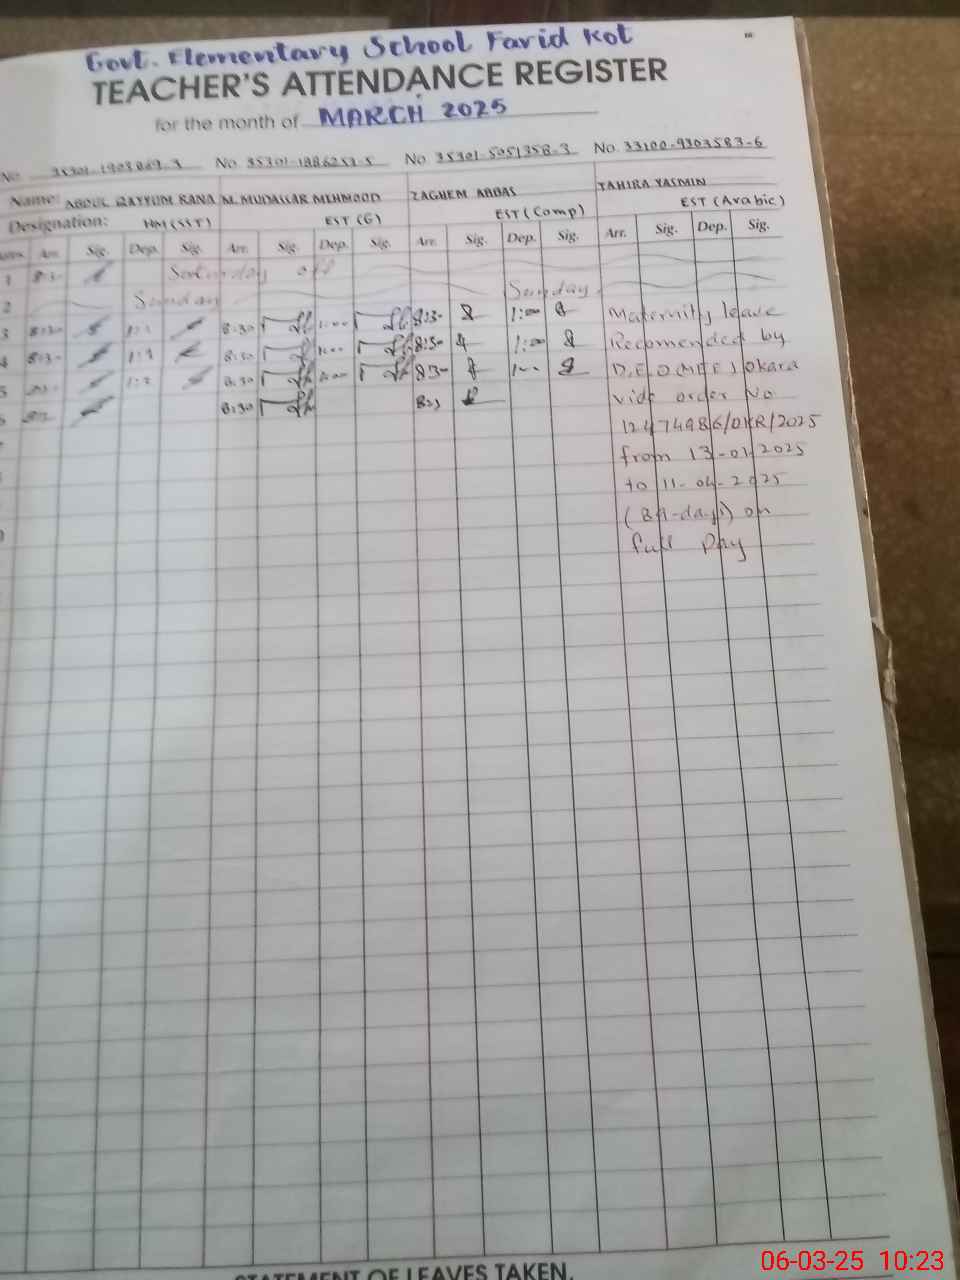 Govt. Elementary School Farid Kot
TEACHER'S ATTENDANCE REGISTER
for the month of MARCH 2025
No. 35301-1903869-3 No. 35301-1886253-5 No. 35301-5051358-3 No. 33100-9303583-6
Name: ABDUL QAYYUM RANA M. MUDASSAR MEHMOOD ZAGHEM ABBAS TAHIRA YASMIN
Designation: HM (SST) EST (G) EST (Comp) EST (Arabic)
Arr. Sig. Dep. Sig. Arr. Sig. Dep. Sig. Arr. Sig. Dep. Sig. Arr. Sig. Dep. Sig.
1 Saturday off
2 Sunday Sunday
3 8:30 8:30 1:00 8:30 1:00 Maternity leave
4 8:30 8:30 1:00 Recomended by
5 8:30 8:30 D.E.O (M.EE) Okara
6 8:30 vide order No
12474986/OKR/2025
from 13-01-2025
to 11-04-2025
(89-days) on
full Pay
STATEMENT OF LEAVES TAKEN.
06-03-25 10:23